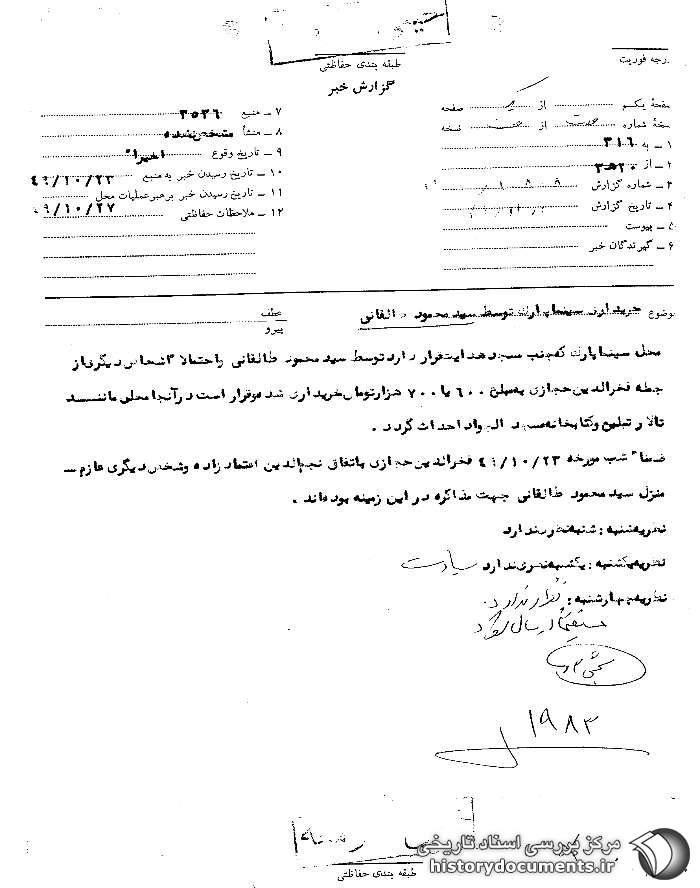 درجه فوریت
طبقه بندی حفاظتی
گزارش خبر
صفحه یکم از صفحه
نسخه شماره از نسخه
۱ ـ به ۳۱۶
۲ ـ از ۳۵۲۰
۳ ـ شماره گزارش
۴ ـ تاریخ گزارش
۵ ـ پیوست
۶ ـ گیرندگان خبر
۷ ـ منبع ۳۵۳۶
۸ ـ منشأ مشخص نشده
۹ ـ تاریخ وقوع اخیرا"
۱۰ ـ تاریخ رسیدن خبر به منبع ۴۹/۱۰/۲۳
۱۱ ـ تاریخ رسیدن خبر برهبر عملیات محل
۱۲ ـ ملاحظات حفاظتی ۹/۱۰/۲۷
موضوع خریداری سینما پارك توسط سید محمود طالقانی
عطف
پیرو
محل سینما پارك که جنب مسجد هدایت قرار دارد توسط سید محمود طالقانی واحتمالا" اشخاص دیگری از
جمله فخرالدین حجازی بمبلغ ۶۰۰ یا ۷۰۰ هزارتومان خریداری شده و قرار است در آنجا محلی ماننــد
تالار تبلیغ وکتابخانه مسجد الجواد احداث گردد .
ضمنا" شب مورخه ۴۹/۱۰/۲۳ فخرالدین حجازی باتفاق نجم الدین اعتماد زاده وشخص دیگری عازم ـ
منزل سید محمود طالقانی جهت مذاکره در این زمینه بوده اند .
نظریه شنبه : شنبه نظری ندارد
نظریه یکشنبه : یکشنبه نظری ندارد سیادت
نظریه چهارشنبه : نظری ندارد.
مستقیماً ارسال گردد
۱۹۸۳
طبقه بندی حفاظتی
مرکز بررسی اسناد تاریخی
historydocuments.ir